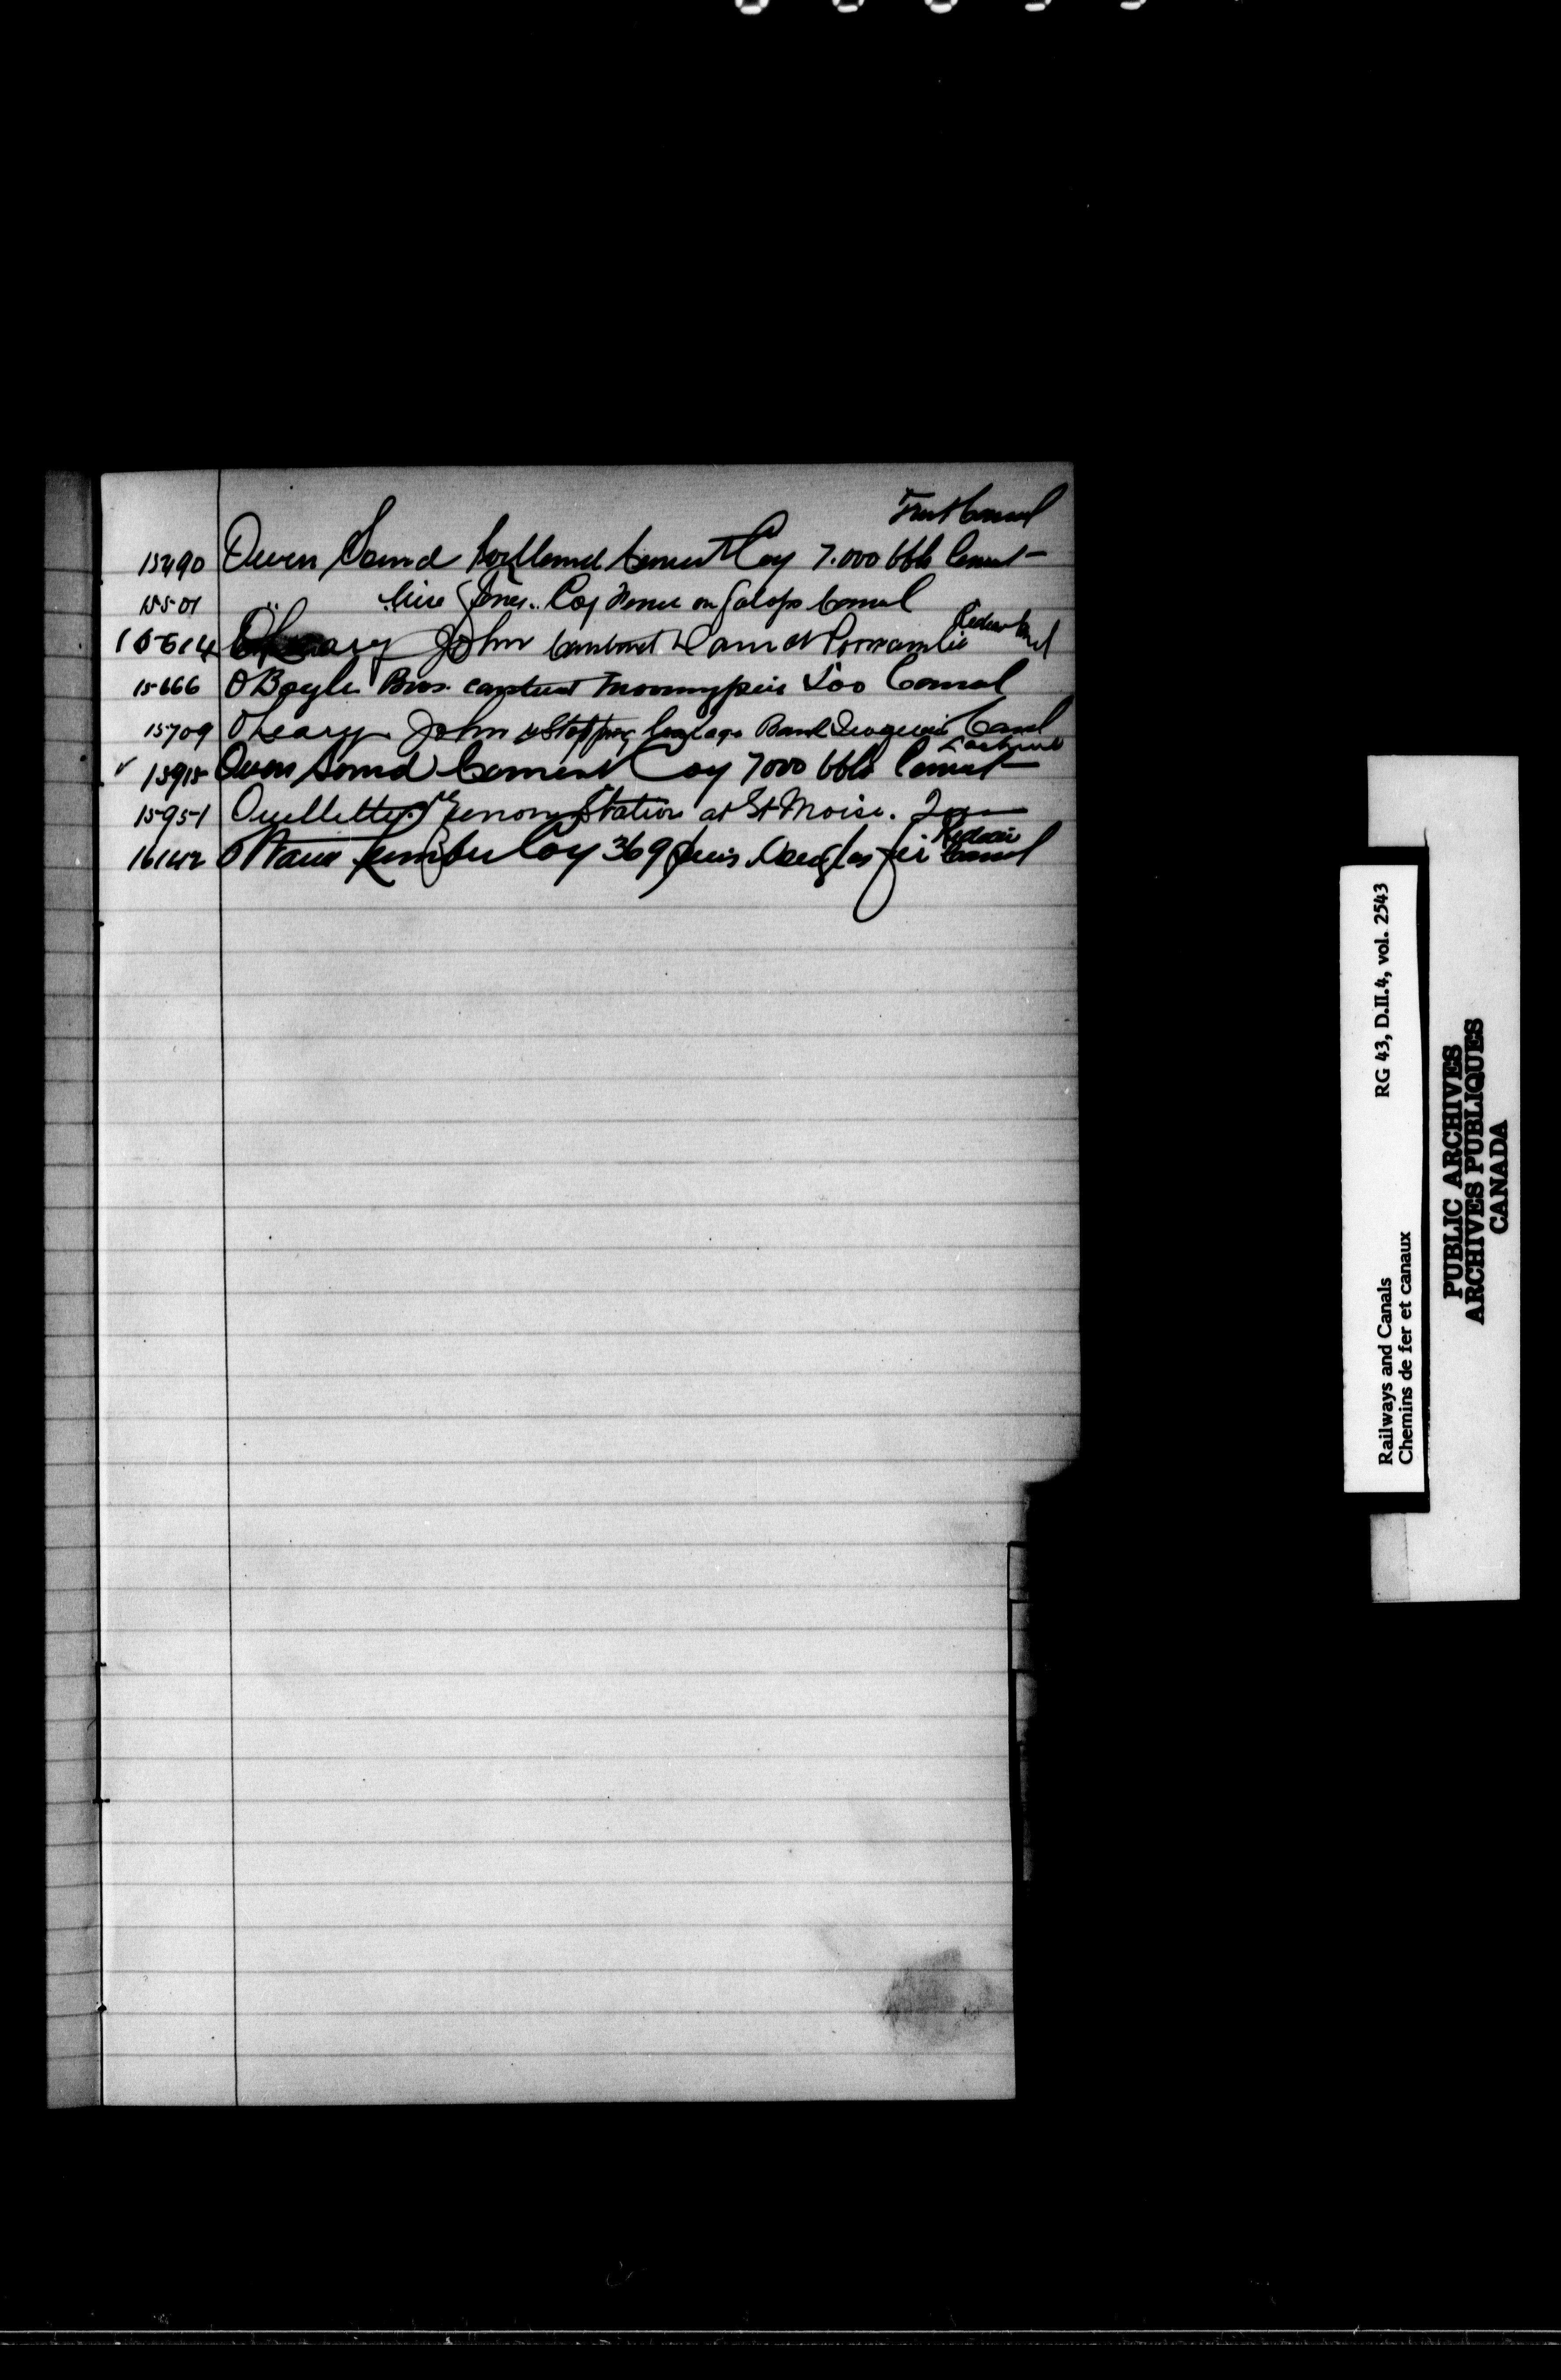 Trent Canal
15490 Owen Sound Portland Cement Coy 7.000 bbls Cement
15501 Wire Fence Coy Fence on Galops Canal
Rideau Canal
15614 OLeary John Construct Dam at Poonamalie
15666 OBoyle Bros. construct mooring pier Soo Canal
15709 OLeary John Stopping leakage Bank Iroquois Canal
Lachine
15915 Owen Sound Cement Coy 7000 bbls Cement
15951 Ouellette Station at St Moise.
Rideau
16142 Ottawa Lumber Coy 369 pcis Douglas fir Canal
Railways and Canals RG 43, D.II.4, vol. 2543
Chemins de fer et canaux
PUBLIC ARCHIVES
ARCHIVES PUBLIQUES
CANADA